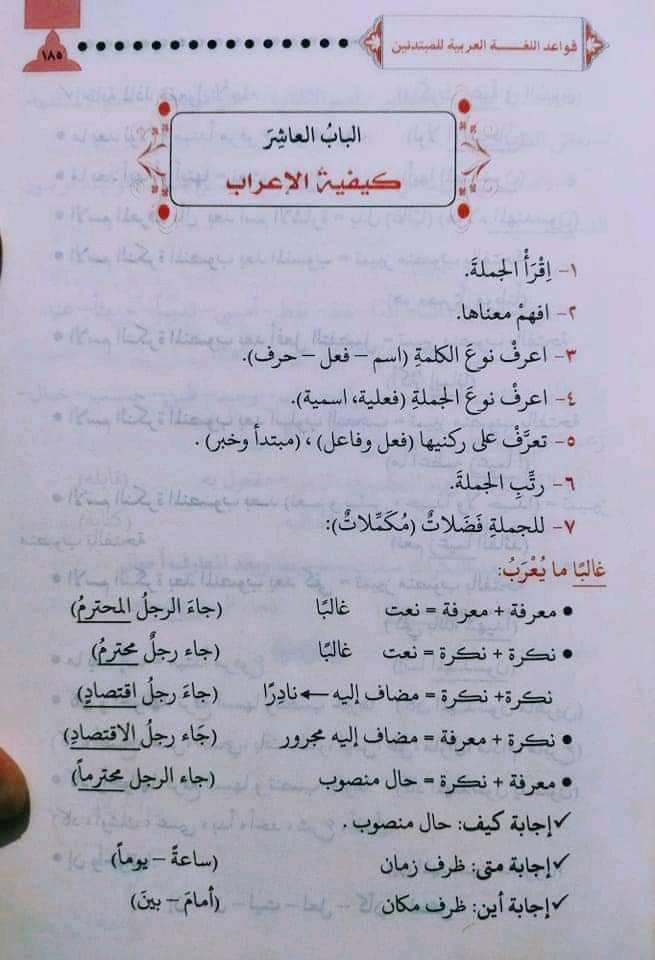 قواعد اللغة العربية للمبتدئين
١٨٥
البابُ العاشِرَ
كيفية الإعراب
١- اِقْرَأْ الجملةَ.
٢- افهمْ معناها.
٣- اعرفْ نوعَ الكَلمةِ (اسم – فعل – حرف).
٤- اعرفْ نوعَ الجملةِ (فعلية، اسمية).
٥- تعرَّفْ على ركنيها (فعل وفاعل)، (مبتدأ وخبر).
٦- رتِّبِ الجملةَ.
٧- للجملةِ فَضَلاتٌ (مُكَمِّلاتٌ):
غالبًا ما يُعْرَبُ:
• معرفة + معرفة = نعت غالبًا (جاءَ الرجلُ المحترمُ)
• نكرة + نكرة = نعت غالبًا (جاء رجلٌ محترمُ)
نكرة+ نكرة = مضاف إليه ← نادِرًا (جاءَ رجلُ اقتصادٍ)
• نكرة + معرفة = مضاف إليه مجرور (جَاء رجلُ الاقتصادِ)
• معرفة + نكرة = حال منصوب (جاء الرجل محترماً)
✓ إجابة كيف: حال منصوب .
✓ إجابة متى: ظرف زمان (ساعةً – يوماً)
✓ إجابة أين: ظرف مكان (أمامَ – بينَ)